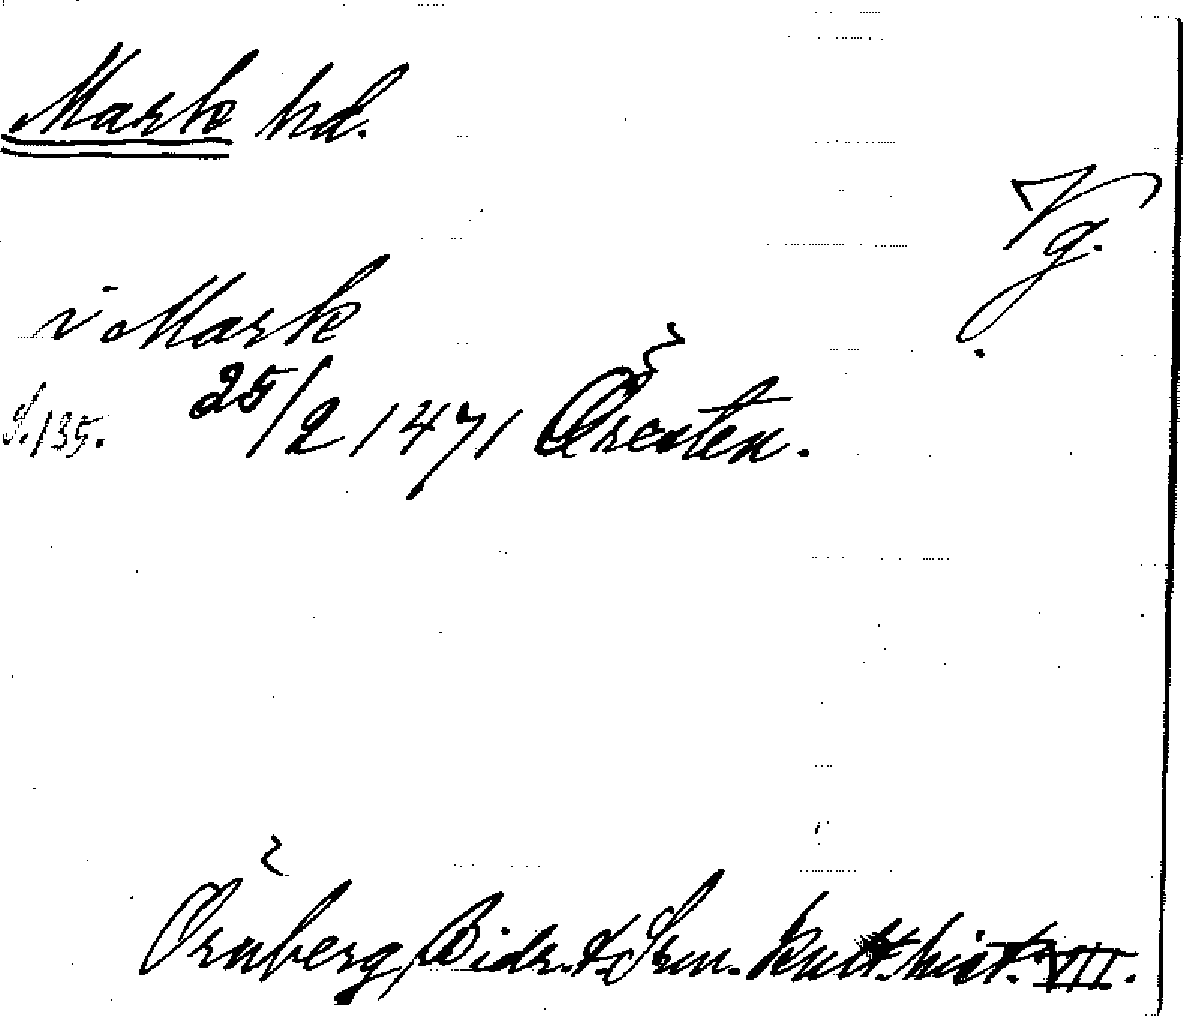 Mark hd.
Vg.
i Mark
S. 135. 25/2 1471 Öresten.
Örnberg, Bidr. t. Srm. kult. hist. VII.